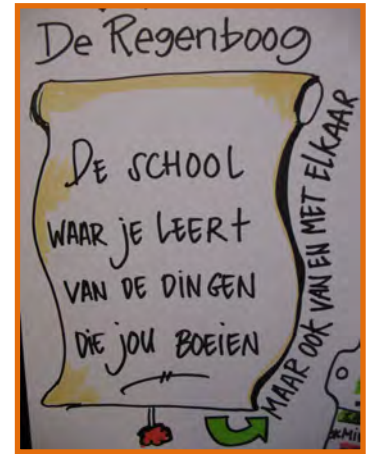 De Regenboog
DE SCHOOL
WAAR jE LEERt
VAN DE DINGEN
DiE jOU BOEiEN
MAAR OOK VAN EN MET ELKAAR